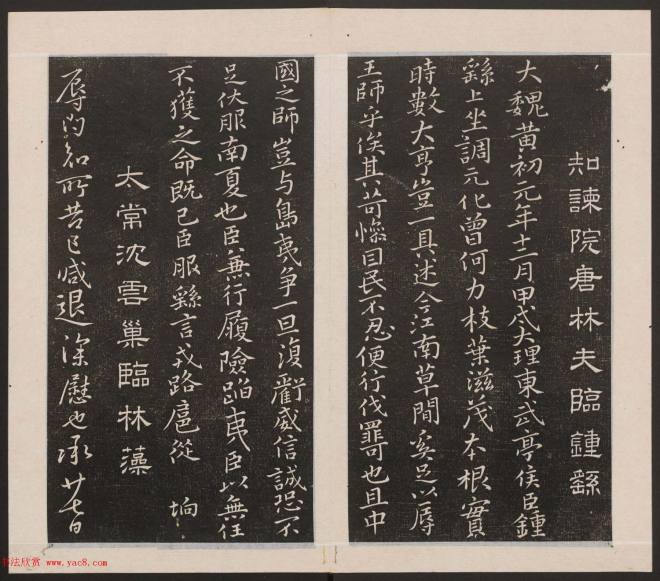 知諫院唐林夫臨鍾繇
大魏黃初元年十二月甲戌大理東武亭侯臣鍾
繇上坐調元化曾何力枝葉滋茂本根實
時數大亨豈一具述今江南草間奚足以辱
王師乎俟其苛慘困民不忍便行伐罪可也且中
國之師豈与島夷爭一旦復勸威信誠恐不
足伏服南夏也臣無行履險蹈夷臣以無任
不獲之命既已臣服繇言戎路扈從 坰
太常沈雲巢臨林藻
辱問知所苦已減退深慰也承廿七日
书法欣赏 www.yac8.com